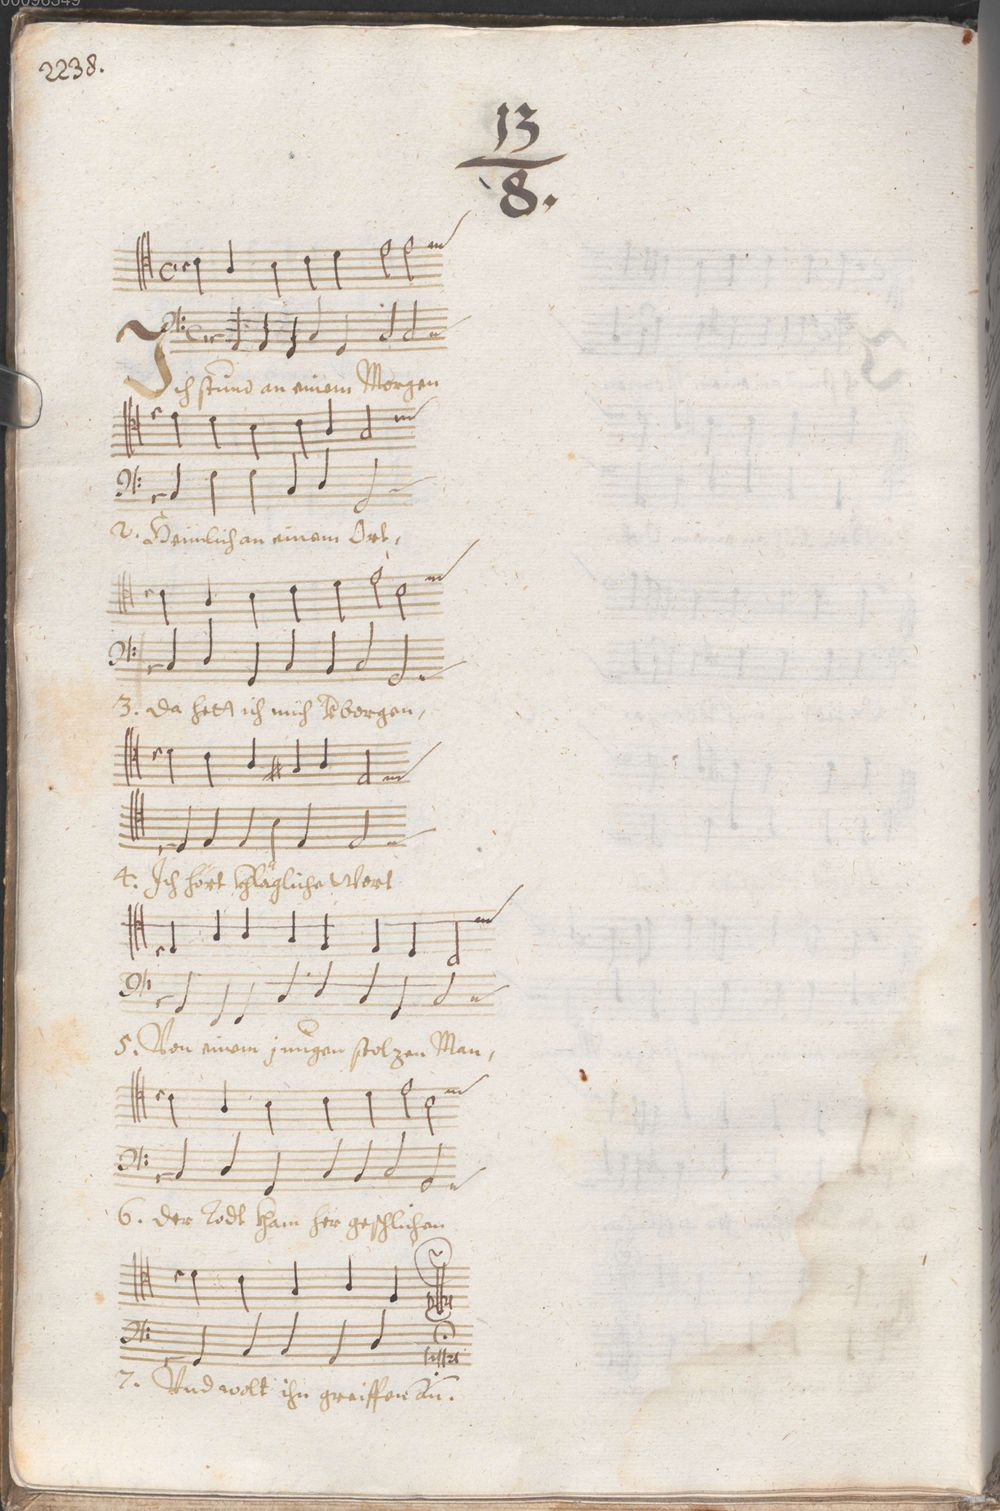 00096349
2238.
13
8.
Ich stund an einem Morgen
2. Heimlich an einem Ort,
3. Da hett ich mich verborgen,
4. Ich hört khlägliche Wort
5. Von einem jungen stolzen Man,
6. Der Todt kham her geschlichen
7. Und wolt ihn greiffen an.